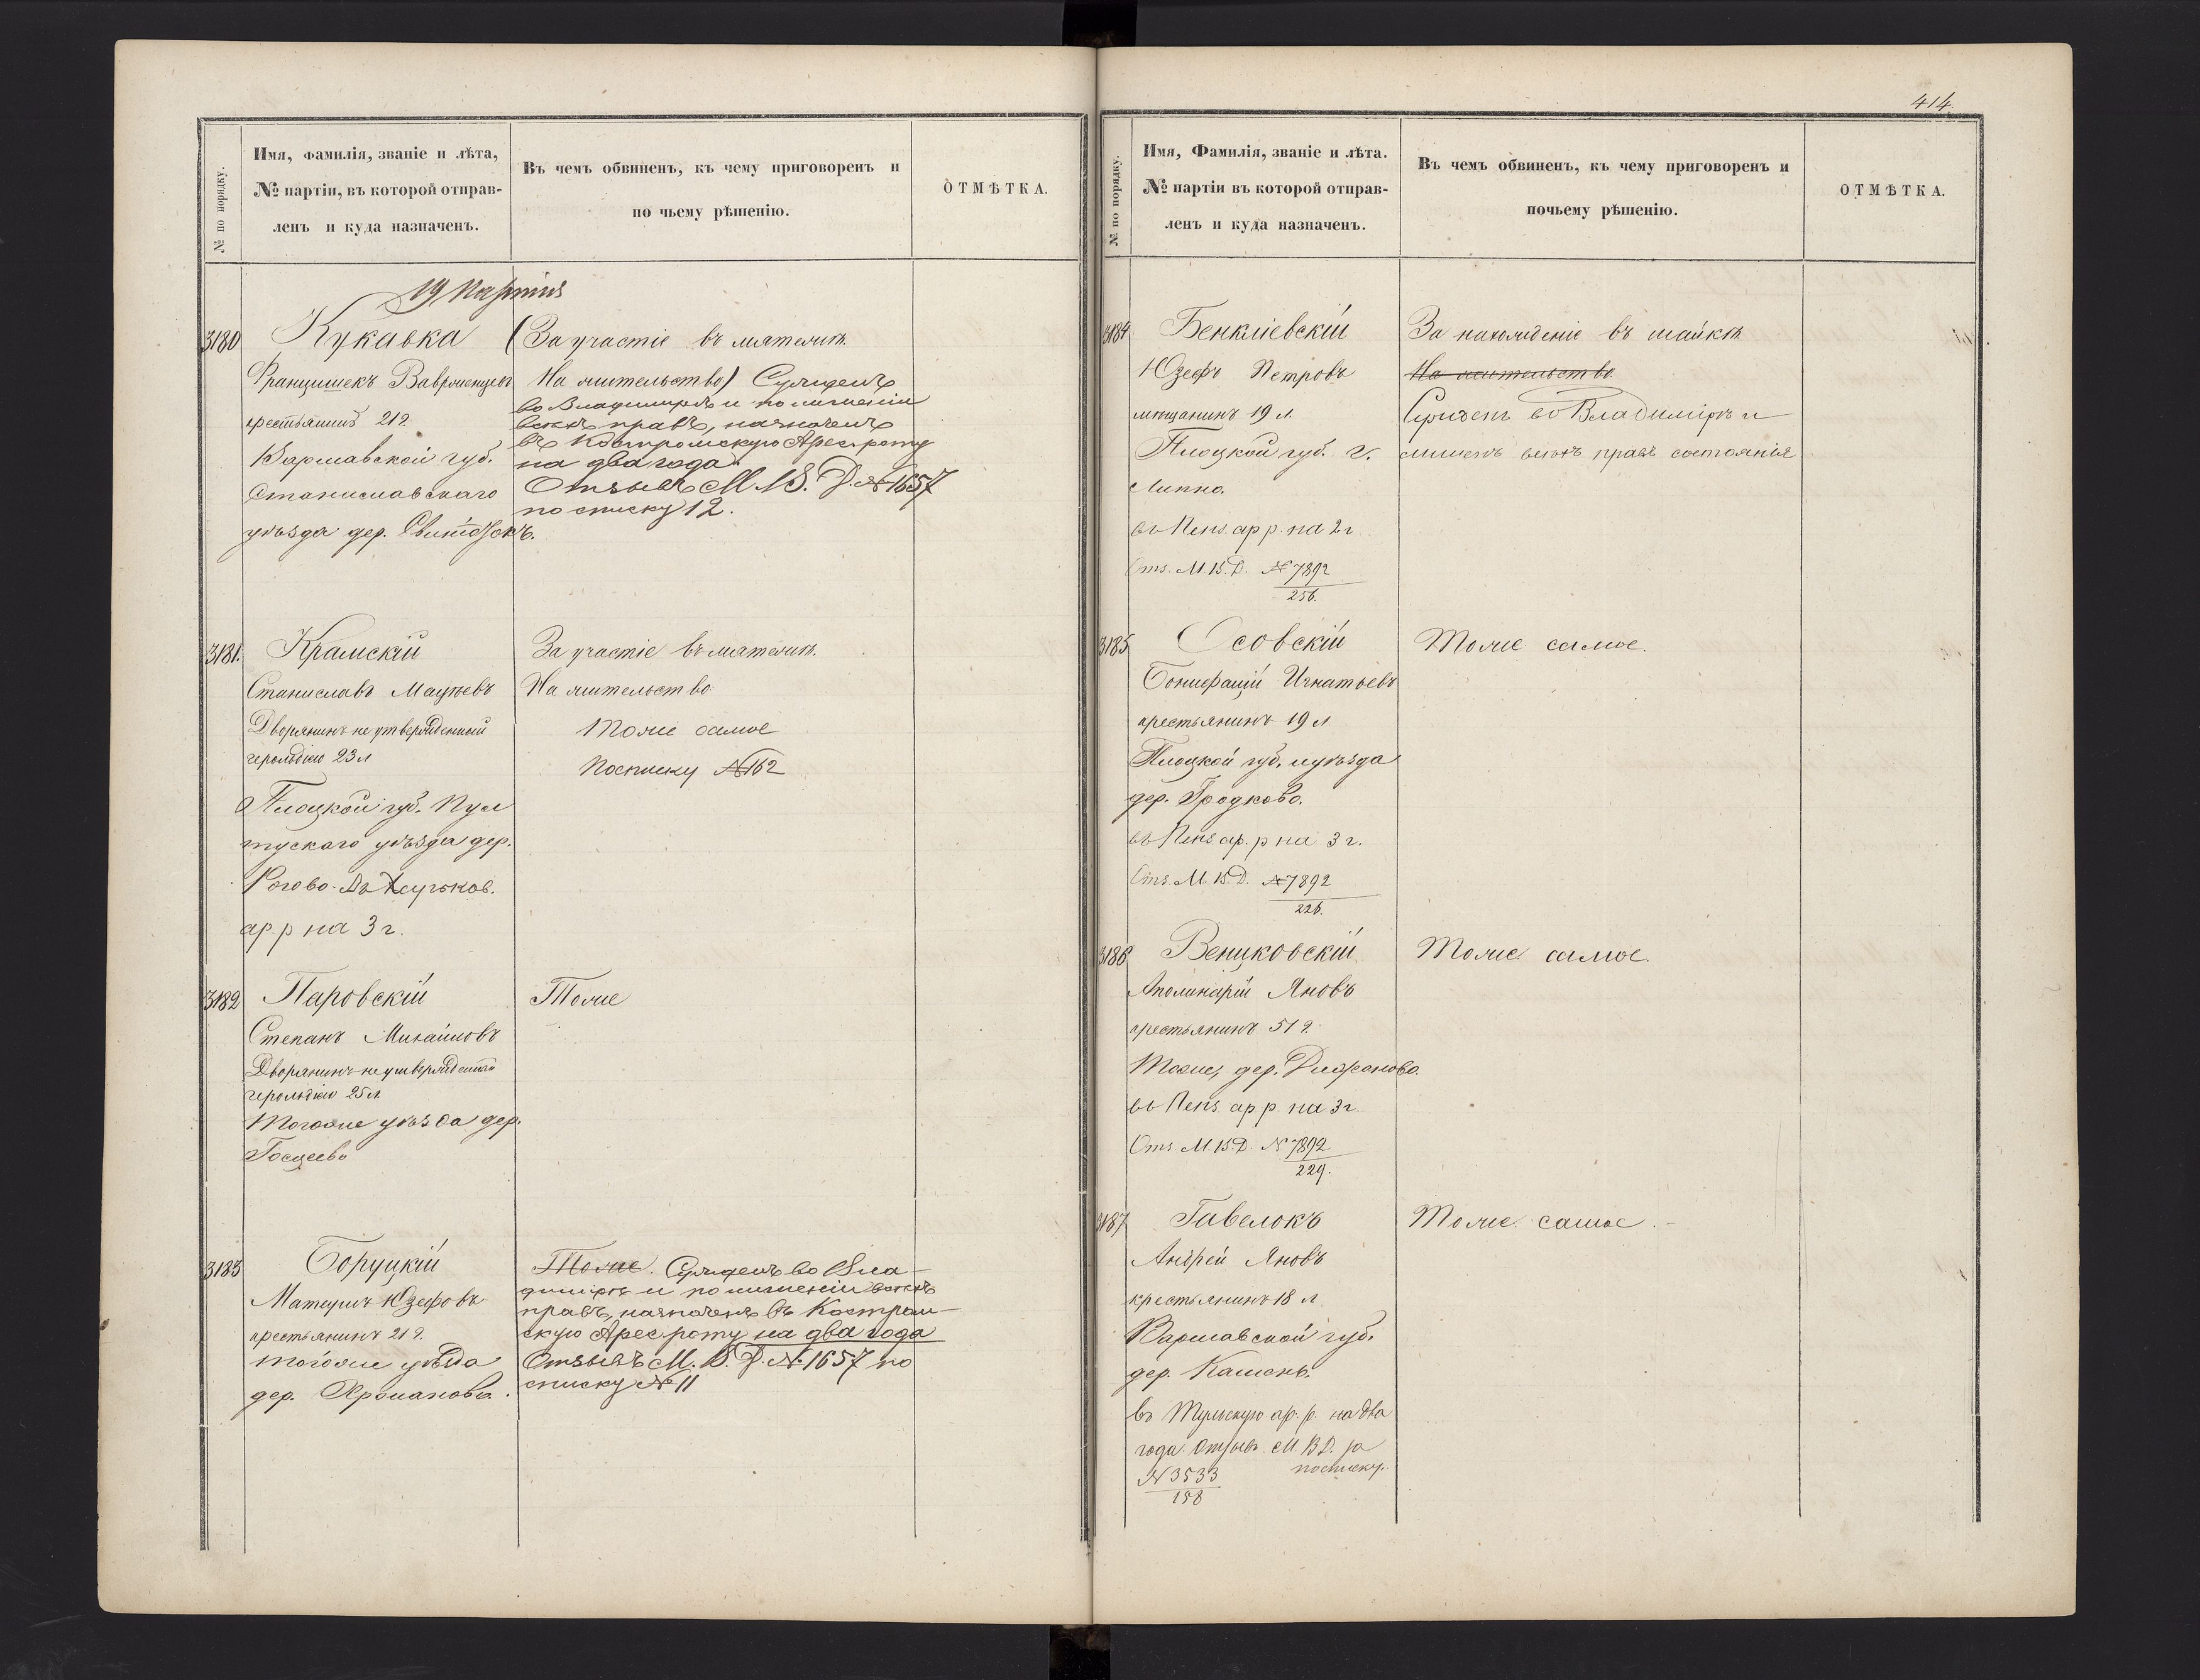 414.
№ по порядку.
Имя, фамилія, званіе и лѣта,
№ партіи, въ которой отправ-
ленъ и куда назначенъ.
Въ чемъ обвиненъ, къ чему приговоренъ и
по чьему рѣшенію.
ОТМѢТКА.
19 Партія
3180
Кукавка
Францишекъ Вавр
крестьянинъ 21 г.
Варшавской губ.
Станиславскаго
уѣзда дер.
(За участіе въ мятежѣ.
На жительство) Сужденъ
во Владимірѣ и по лишеніи
всѣхъ правъ, назначенъ
въ Костромскую Арест. роту
на два года.
Отзывъ М. В. Д. № 1657
по списку 12.
3181.
Крамскій
Станиславъ Мацѣевъ
Дворянинъ не утвержденный
герольдіею 23 л
Плоцкой губ. Пул
тускаго уѣзда дер.
Рогово. Въ Харьков.
ар. р на 3 г.
За участіе въ мятежѣ.
На жительство
Тоже самое
По списку № 162
3182
Паровскій
Степанъ Михайловъ
Дворянинъ не утвержденный
герольдіею 25 л.
Тогоже уѣзда дер.
Госцеево
Тоже
3183
Боруцкій
Матеушъ Юзефовъ
крестьянинъ 21 г.
тогоже уѣзда
дер.
Тоже. Сужденъ во Вла-
димірѣ и по лишеніи всѣхъ
правъ, назначенъ въ Костром-
скую Арес. роту на два года
Отзывъ М. В. Д. № 1657 по
списку № 11
№ по порядку.
Имя, Фамилія, званіе и лѣта.
№ партіи въ которой отправ-
ленъ и куда назначенъ.
Въ чемъ обвиненъ, къ чему приговоренъ и
почьему рѣшенію.
ОТМѢТКА.
3184
Юзефъ Петровъ
мѣщанинъ 19 л.
Плоцкой губ. г.
Липно.
въ Пенз. ар р. на 2 г
Отз. М. В. Д. № 7892
256.
За нахожденіе въ шайкѣ
На жительство.
Сужденъ во Владимірѣ и
лишенъ всѣхъ правъ состоянія
3185
Осовскій
Бонифацій Игнатьевъ
крестьянинъ 19 л
Плоцкой губ. и уѣзда
дер. Гродково.
въ Пенз ар. р на 3 г.
Отз. М. В. Д. № 7892
226.
Тоже самое.
3186
Венцковскій
Аполинарій Яновъ
крестьянинъ 51 г.
Тоже, дер.
въ Пенз. ар р. на 3 г.
Отз. М. В. Д. № 7892
229.
Тоже самое.
3187
Гавелокъ
Андрей Яновъ
крестьянинъ 18 л
Варшавской губ.
дер. Камень.
въ Тульскую ар. р. на два
года. Отзывъ М. В. Д. за
№ 3533 по списку.
158
Тоже самое.